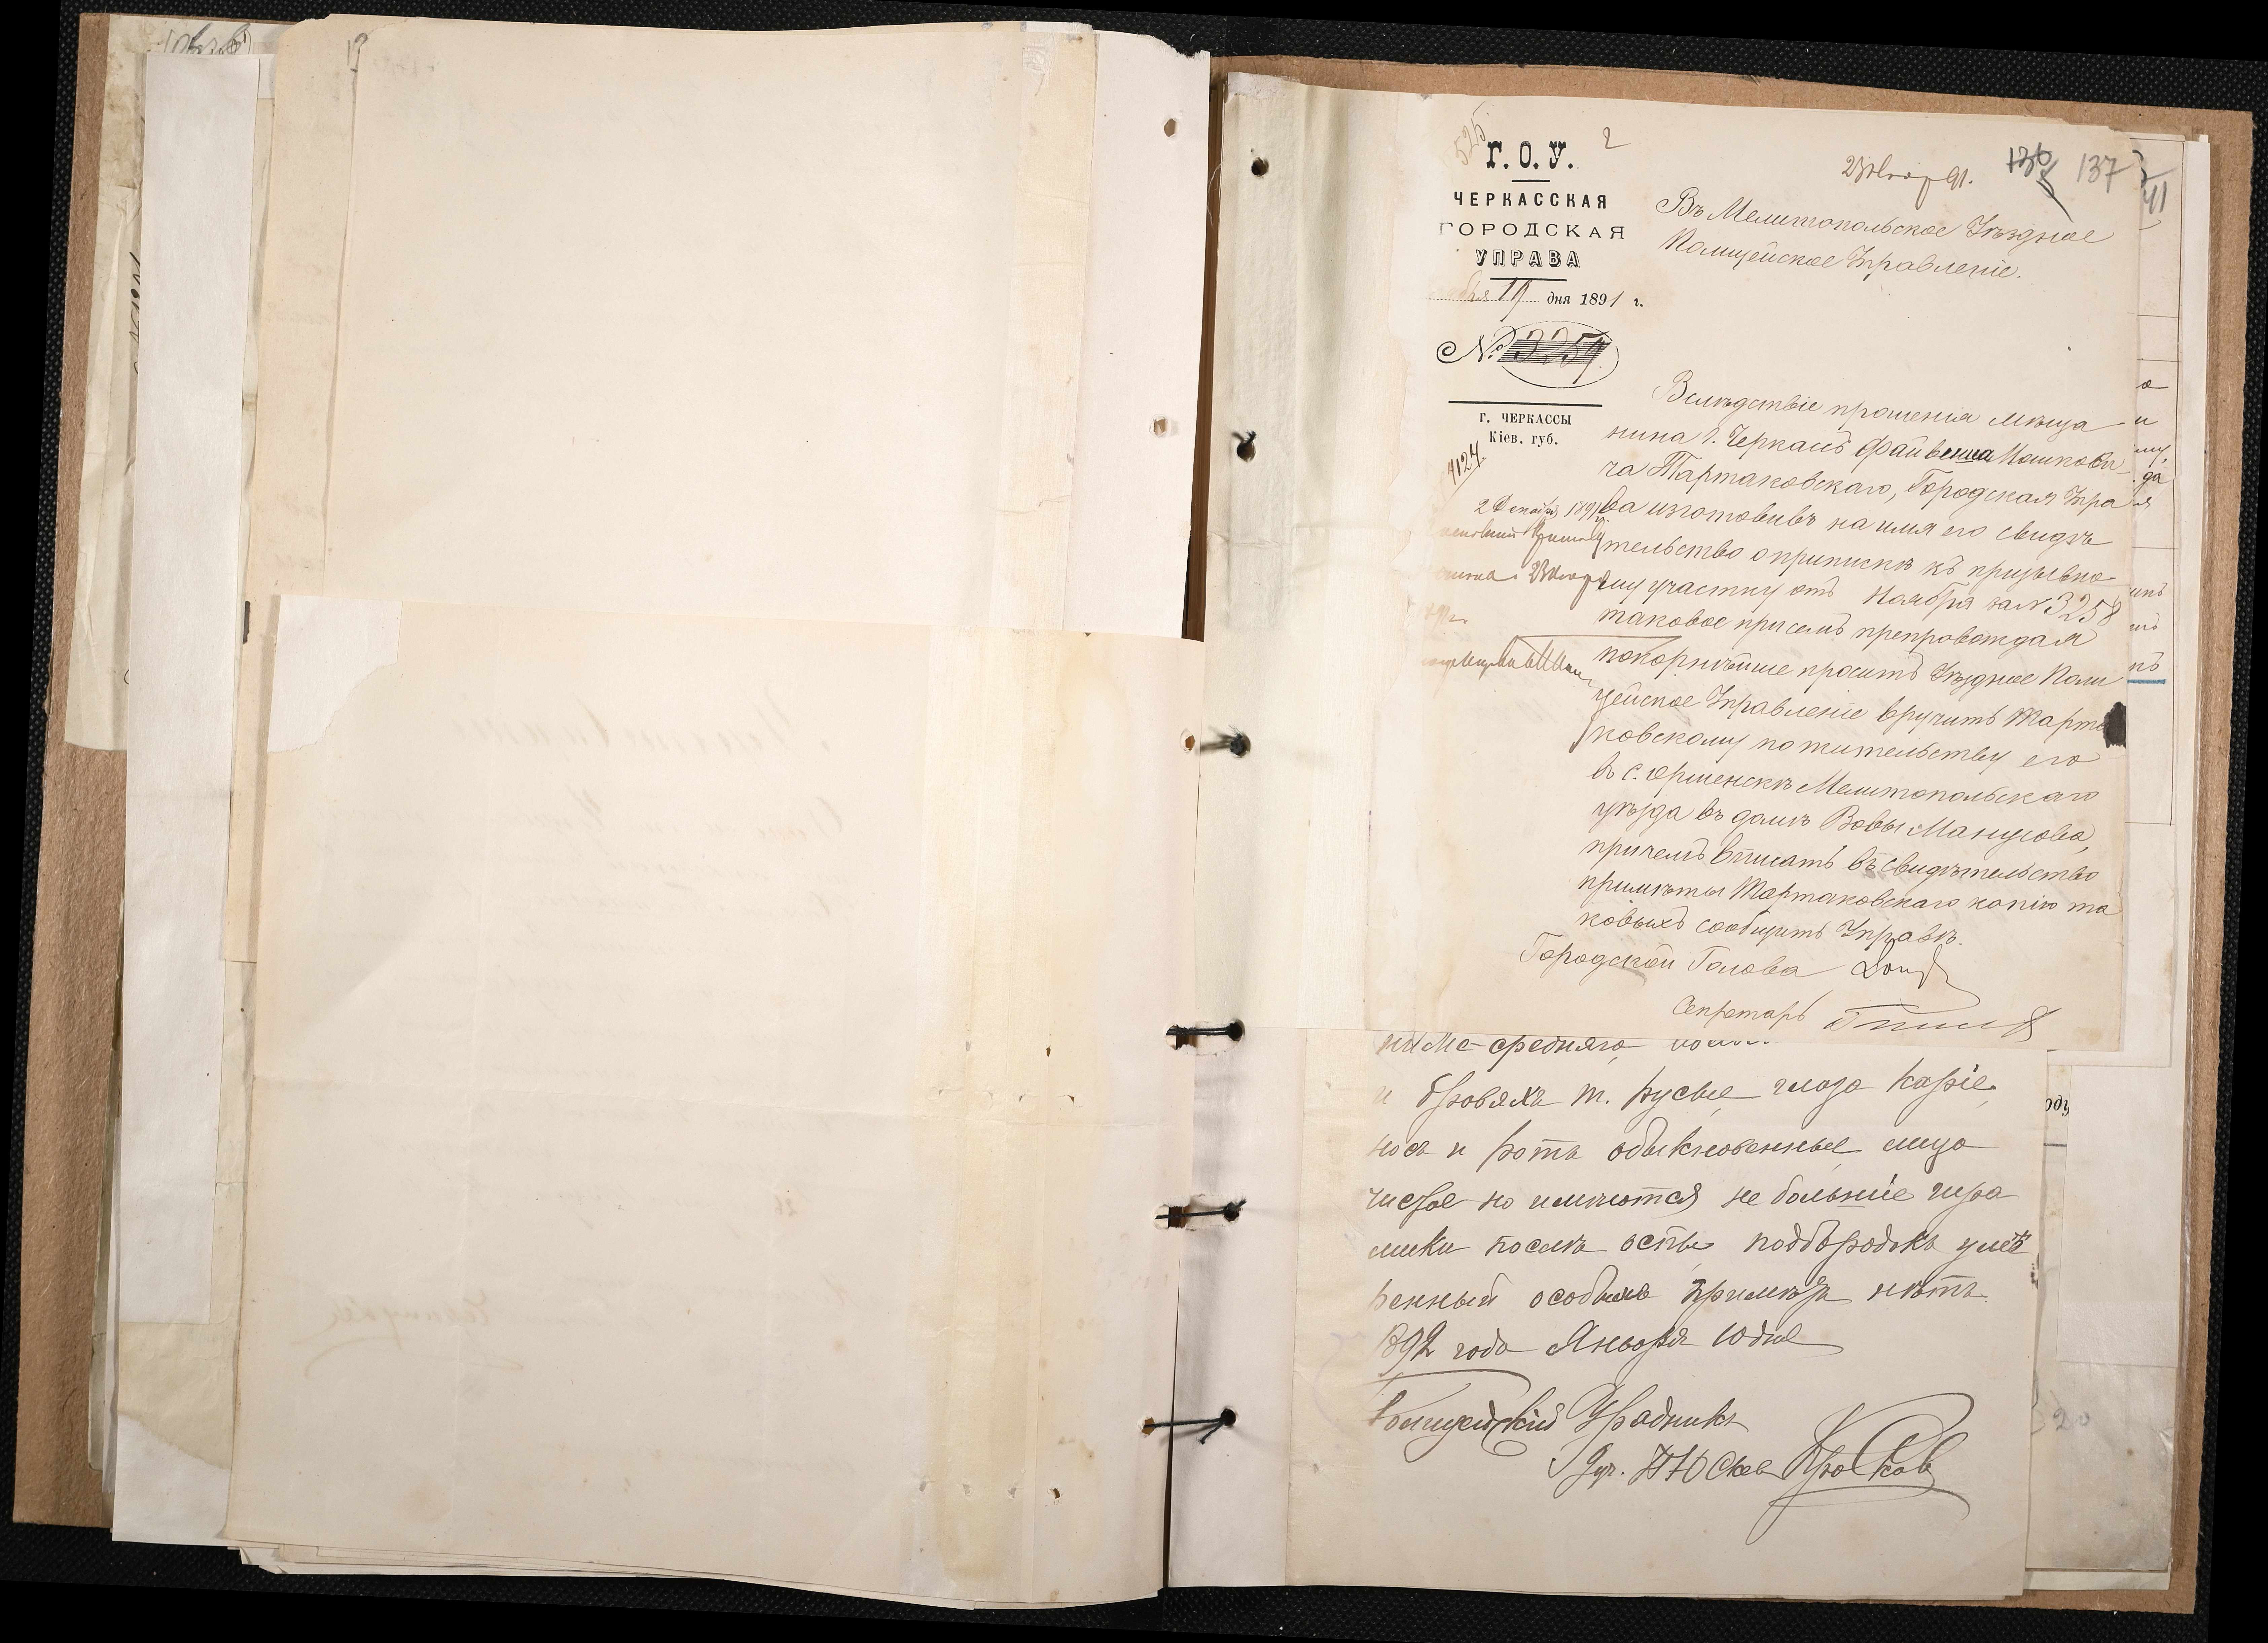 525
2
Г. О. У.
ЧЕРКАССКАЯ
ГОРОДСКАЯ
УПРАВА
19 дня 1891 г.
№ 3259.
Г. ЧЕРКАССЫ
Кіев. губ.
4124
91.
136 137
41
Въ Мелитопольское Уѣздное
Полицейское Управленіе.
Вслѣдствіе прошенія мѣща
нина г. Черкасъ Файвиша Мошкови
ча Тартаковскаго, Городская Упра
ва изготовивъ на имя его свидѣ
тельство о припискѣ къ призывно
му участку отъ Ноября за № 3258
таковое при семъ препровождая
покорнѣйше проситъ Уѣздное Поли
цейское Управленіе вручить Тарта
ковскому по жительству его
въ с. Мелитопольскаго
уѣзда въ домѣ Вовы Манусова,
причемъ вписать въ свидѣтельство
примѣты Тартаковскаго копію та
ковыхъ сообщить Управѣ.
Городской Голова
Секретарь
2 Декабря 1891
средняго
и бровяхъ т. русые глаза каріе,
носъ и ротъ обыкновенные лицо
чистое но имѣются не большіе
послѣ оспы, подбородкъ умѣ
ренный особыхъ примѣтъ нѣтъ.
1892 года Января 10 дня
Полицейскій Урядникъ